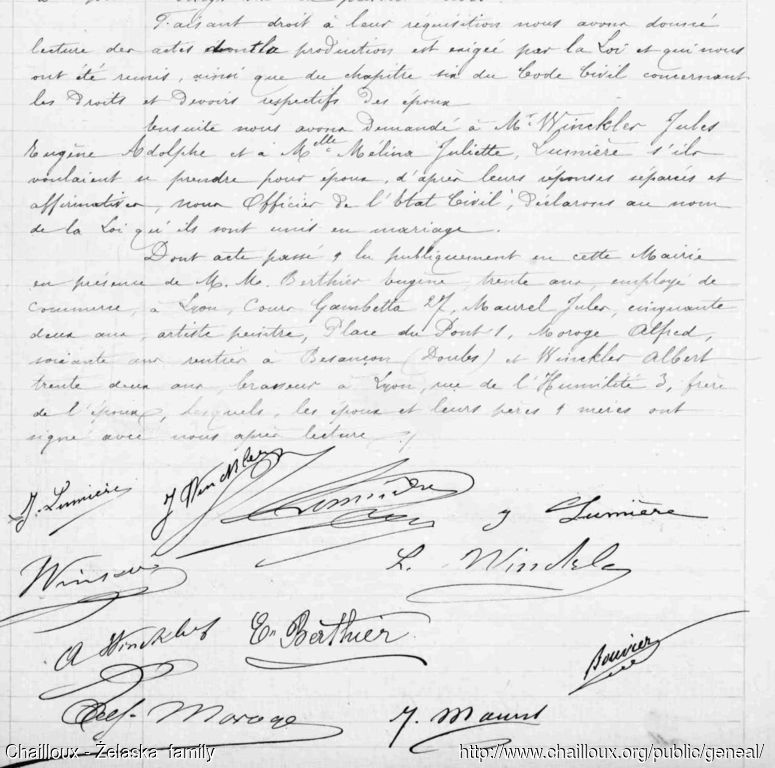 Faisant droit à leur requisition nous avons donné
lecture des actes dont la production est exigée par la Loi et qui nous
ont été remis, ainsi que du chapitre six du Code Civil concernant
les Droits et Devoirs respectifs des époux
Ensuite nous avons Demandé à Mr Winckler Jules
Eugène Adolphe et à Melle Mélina Juliette, Lumière s'ils
voulaient se prendre pour époux, d'après leurs réponses séparées et
affirmatives, nous Officier de l'Etat Civil, déclarons au nom
de la Loi qu'ils sont unis en mariage.
Dont acte passé & lu publiquement en cette Mairie
en présence de M. M. Berthier Eugène, trente ans, employé de
Commerce, à Lyon, Cours Gambetta 27, Maurel Jules, cinquante
deux ans, artiste peintre, Place du Pont 1, Moroge Alfred,
soixante ans rentier à Besançon (Doubs) et Winckler Albert
trente deux ans, brasseur à Lyon, rue de l'Humilité 3, frère
de l'époux, lesquels, les époux et leurs pères & mères ont
signé avec nous après lecture
J. Lumière J Winckler Lumière J Lumière
L. Winckler
A Winckler En Berthier
Bouvier
Alf. Moroge J. Maurel
Chailloux - Želaska family http://www.chailloux.org/public/geneal/